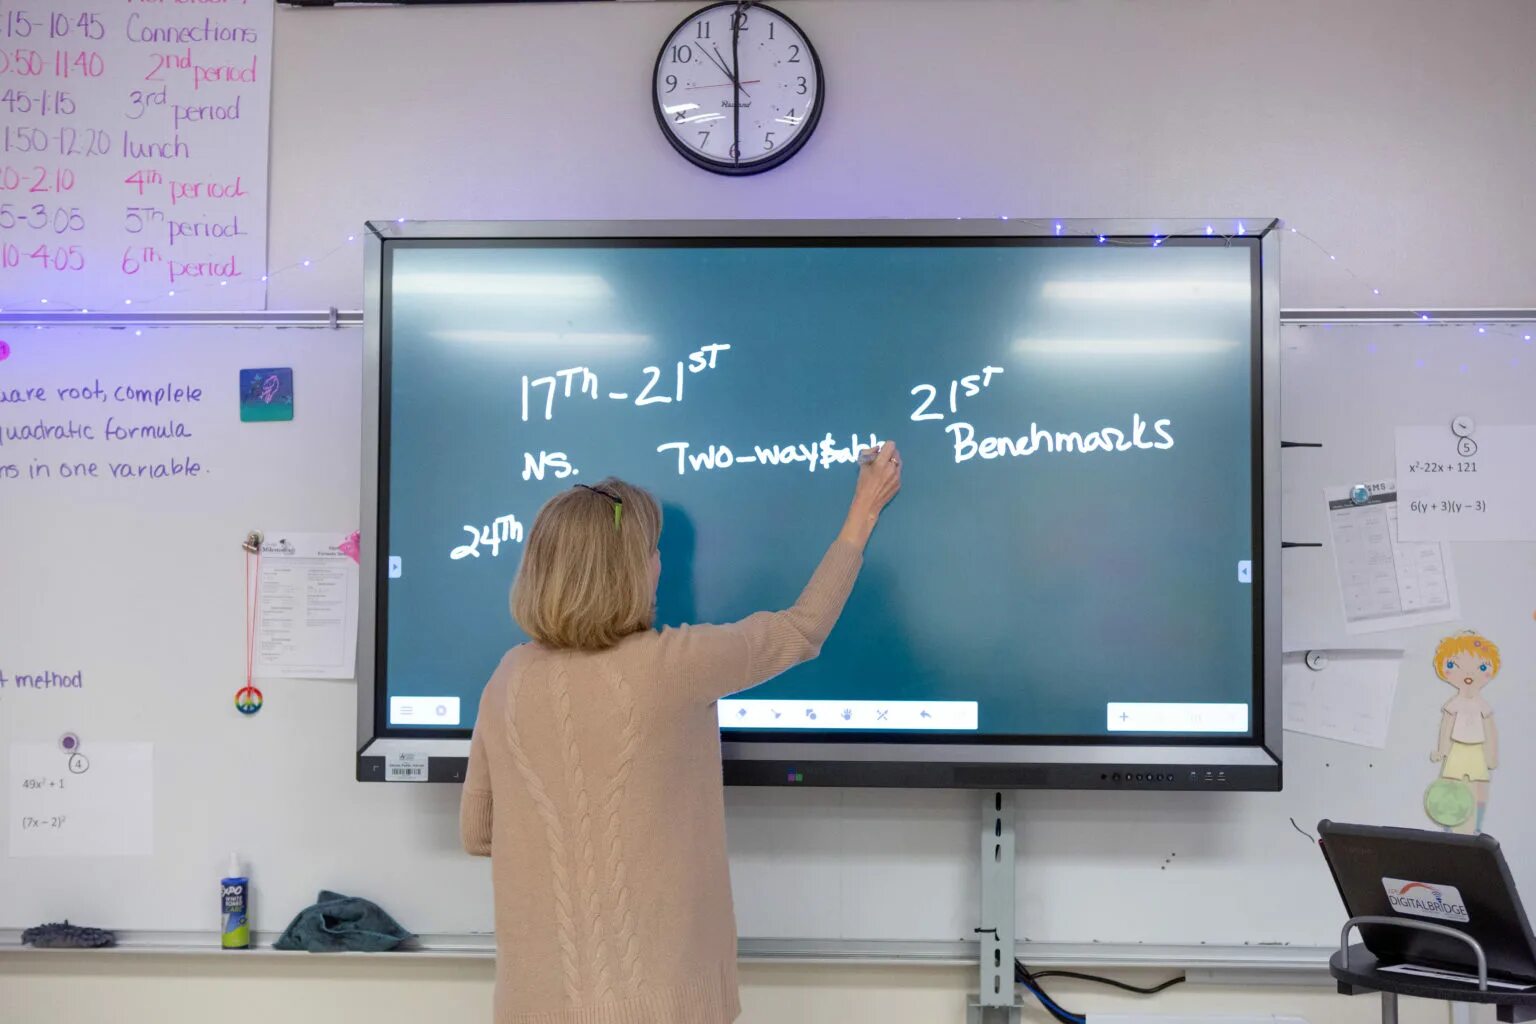 :15-10:45 Connections
0:50-11:40 2nd period
45-1:15 3rd period
1:50-12:20 lunch
20-2:10 4th period
5-3:05 5th period
10-4:05 6th period
uare root, complete
quadratic formula
ns in one variable.
t method
4
49x² + 1
(7x – 2)²
EXPO
11 12 1
10 2
9 3
8 4
7 6 5
17Th-21ST
NS. Two-way
24Th
21ST
Benchmarks
5
x²-22x + 121
6(y + 3)(y – 3)
DIGITALBRIDGE